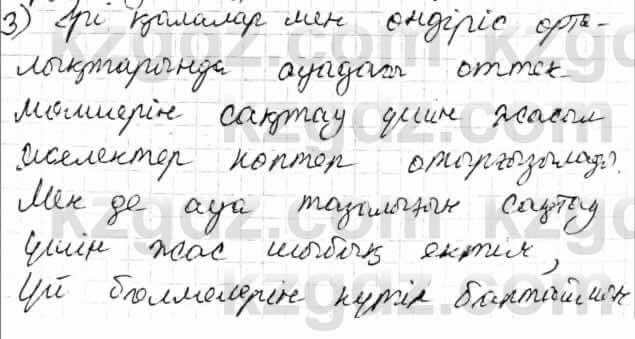 3) Ірі қалалар мен өндіріс орта-
лықтарында ауадағы оттек
мөлшерін сақтау үшін жасыл
желектер көптеп отырғызылады.
Мен де ауа тазалығын сақтау
үшін жас шыбық ектім,
үй бөлмелерін күтіп баптаймын
kzgdz.com